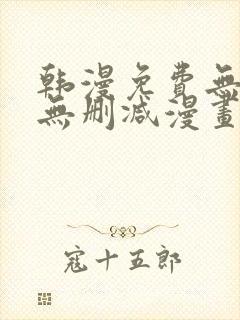 韩漫免費無
無删减漫畫
寇十五郎